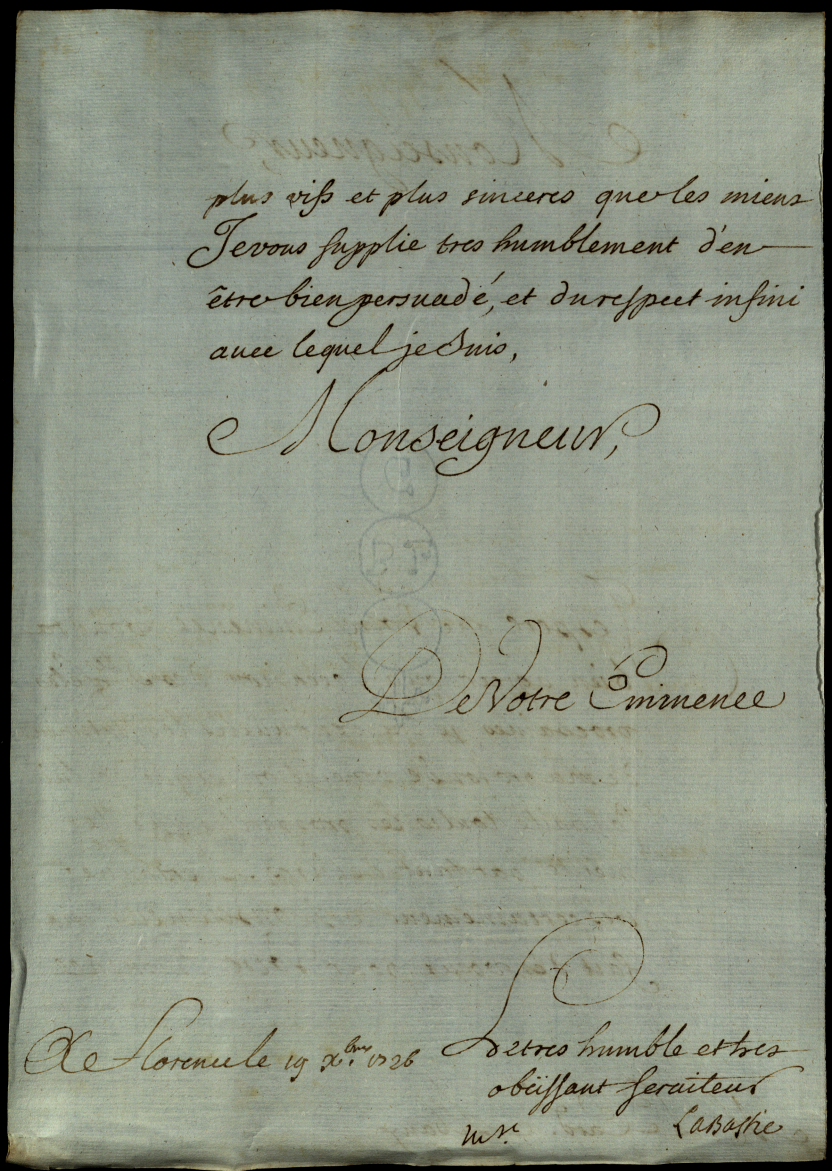 plus vifs et plus sinceres que les miens
Je vous supplie tres humblement d'en
être bien persuadé, et du respect infini
auec lequel je suis,
Monseigneur,
De Votre Eminence
Le tres humble et tres
obeïssant seruiteur
De Florence le 19 Xbre 1726
LaBastie